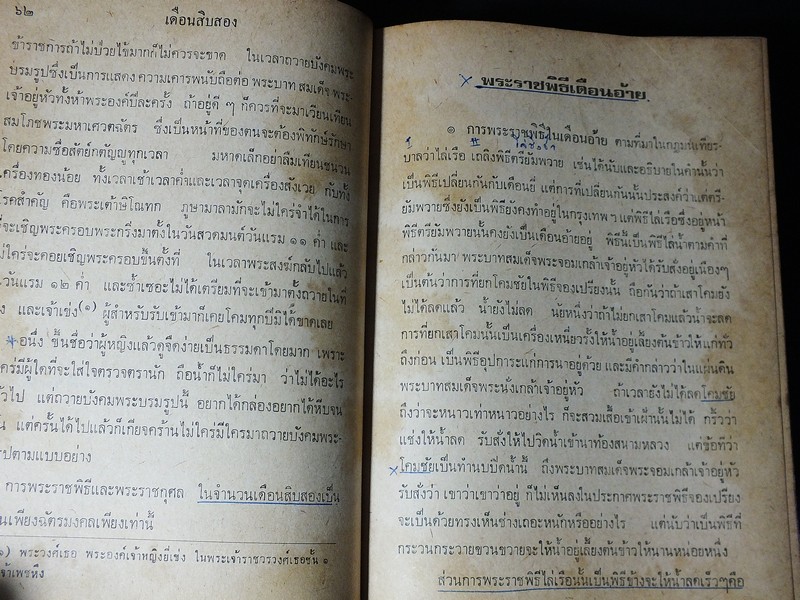 ๖๒
เดือนสิบสอง
ข้าราชการถ้าไม่ป่วยไข้มากก็ไม่ควรจะขาด ในเวลาถวายบังคมพระ
บรมรูปซึ่งเป็นการแสดง ความเคารพนับถือต่อ พระบาท สมเด็จ พระ-
เจ้าอยู่หัวทั้งห้าพระองค์ปีละครั้ง ถ้าอยู่ดี ๆ ก็ควรที่จะมาเวียนเทียน
สมโภชพระมหาเศวตฉัตร ซึ่งเป็นหน้าที่ของตนจะต้องพิทักษ์รักษา
โดยความซื่อสัตย์กตัญญูทุกเวลา มหาดเล็กอย่าลืมเทียนชนวน
เครื่องทองน้อย ทั้งเวลาเช้าเวลาค่ำและเวลาจุดเครื่องสังเวย กับทั้ง
โรคสำคัญ คือพระเต้าษิโณทก ภูษามาลามักจะไม่ใคร่จำได้ในการ
ที่จะเชิญพระครอบพระกริ่งมาตั้งในวันสวดมนต์วันแรม ๑๑ ค่ำ และ
ไม่ใคร่จะคอยเชิญพระครอบขึ้นตั้งที่ ในเวลาพระสงฆ์กลับไปแล้ว
วันแรม ๑๒ ค่ำ และซ้ำเซอะไม่ได้เตรียมที่จะเข้ามาตั้งถวายในที่
และเจ้าเซ่ง(๑) ผู้สำหรับรับเข้ามาก็เคยโคมทุกปีมิได้ขาดเลย
อนึ่ง ขึ้นชื่อว่าผู้หญิงแล้วดูจืดง่ายเป็นธรรมดาโดยมาก เพราะ
ใคร่มีผู้ใดที่จะใส่ใจตรวจตรานัก ถือน้ำก็ไม่ใคร่มา ว่าไม่ได้อะไร
ทั่วไป แต่ถวายบังคมพระบรมรูปนี้ อยากได้กล่องอยากได้หีบจน
แต่ครั้นได้ไปแล้วก็เกียจคร้านไม่ใคร่มีใครมาถวายบังคมพระ-
รูปตามแบบอย่าง
การพระราชพิธีและพระราชกุศล ในจำนวนเดือนสิบสองเป็น
นเพียงฉัตรมงคลเพียงเท่านี้
๑) พระวงศ์เธอ พระองค์เจ้าหญิงยี่เข่ง ในพระเจ้าราชวรวงศ์เธอชั้น ๑
เจ้าเพชหึง
พระราชพิธีเดือนอ้าย
๑ การพระราชพิธีในเดือนอ้าย ตามที่มาในกฎมณเฑียร-
บาลว่าไล่เรือ เถลิงพิธีตรียัมพวาย เช่นได้นับและอธิบายในคำนั้นว่า
เป็นพิธีเปลี่ยนกันกับเดือนยี่ แต่การที่เปลี่ยนกันนั้นประสงค์ว่าแต่ตรี-
ยัมพวายซึ่งยังเป็นพิธียังคงทำอยู่ในกรุงเทพ ๆ แต่พิธีไล่เรือซึ่งอยู่หน้า
พิธีตรียัมพวายนั้นคงยังเป็นเดือนอ้ายอยู่ พิธีนี้เป็นพิธีไล่น้ำตามคำที่
กล่าวกันมา พระบาทสมเด็จพระจอมเกล้าเจ้าอยู่หัวได้รับสั่งอยู่เนืองๆ
เป็นต้นว่าการที่ยกโคมชัยในพิธีจองเปรียงนั้น ถือกันว่าถ้าเสาโคมยัง
ไม่ได้ลดแล้ว น้ำยังไม่ลด นัยหนึ่งว่าถ้าไม่ยกเสาโคมแล้วน้ำจะลด
การที่ยกเสาโคมนั้นเป็นเครื่องเหนี่ยวรั้งให้น้ำอยู่เลี้ยงต้นข้าวให้แก่ทั่ว
ถึงก่อน เป็นพิธีอุปการะแก่การนาอยู่ด้วย และมีคำกล่าวว่าในแผ่นดิน
พระบาทสมเด็จพระนั่งเกล้าเจ้าอยู่หัว ถ้าเวลายังไม่ได้ลดโคมชัย
ถึงว่าจะหนาวเท่าหนาวอย่างไร ก็จะสวมเสื้อเข้าเฝ้านั้นไม่ได้ กริ้วว่า
แช่งให้น้ำลด รับสั่งให้ไปวิดน้ำเข้านาท้องสนามหลวง แต่ข้อที่ว่า
โคมชัยเป็นทำนบปิดน้ำนี้ ถึงพระบาทสมเด็จพระจอมเกล้าเจ้าอยู่หัว
รับสั่งว่า เขาว่าเขาว่าอยู่ ก็ไม่เห็นลงในประกาศพระราชพิธีจองเปรียง
จะเป็นด้วยทรงเห็นช่างเถอะหนักหรืออย่างไร แต่นับว่าเป็นพิธีที่
กระวนกระวายขวนขวายจะให้น้ำอยู่เลี้ยงต้นข้าวให้นานหน่อยหนึ่ง
ส่วนการพระราชพิธีไล่เรือนั้นเป็นพิธีข้างจะให้น้ำลดเร็วๆคือ